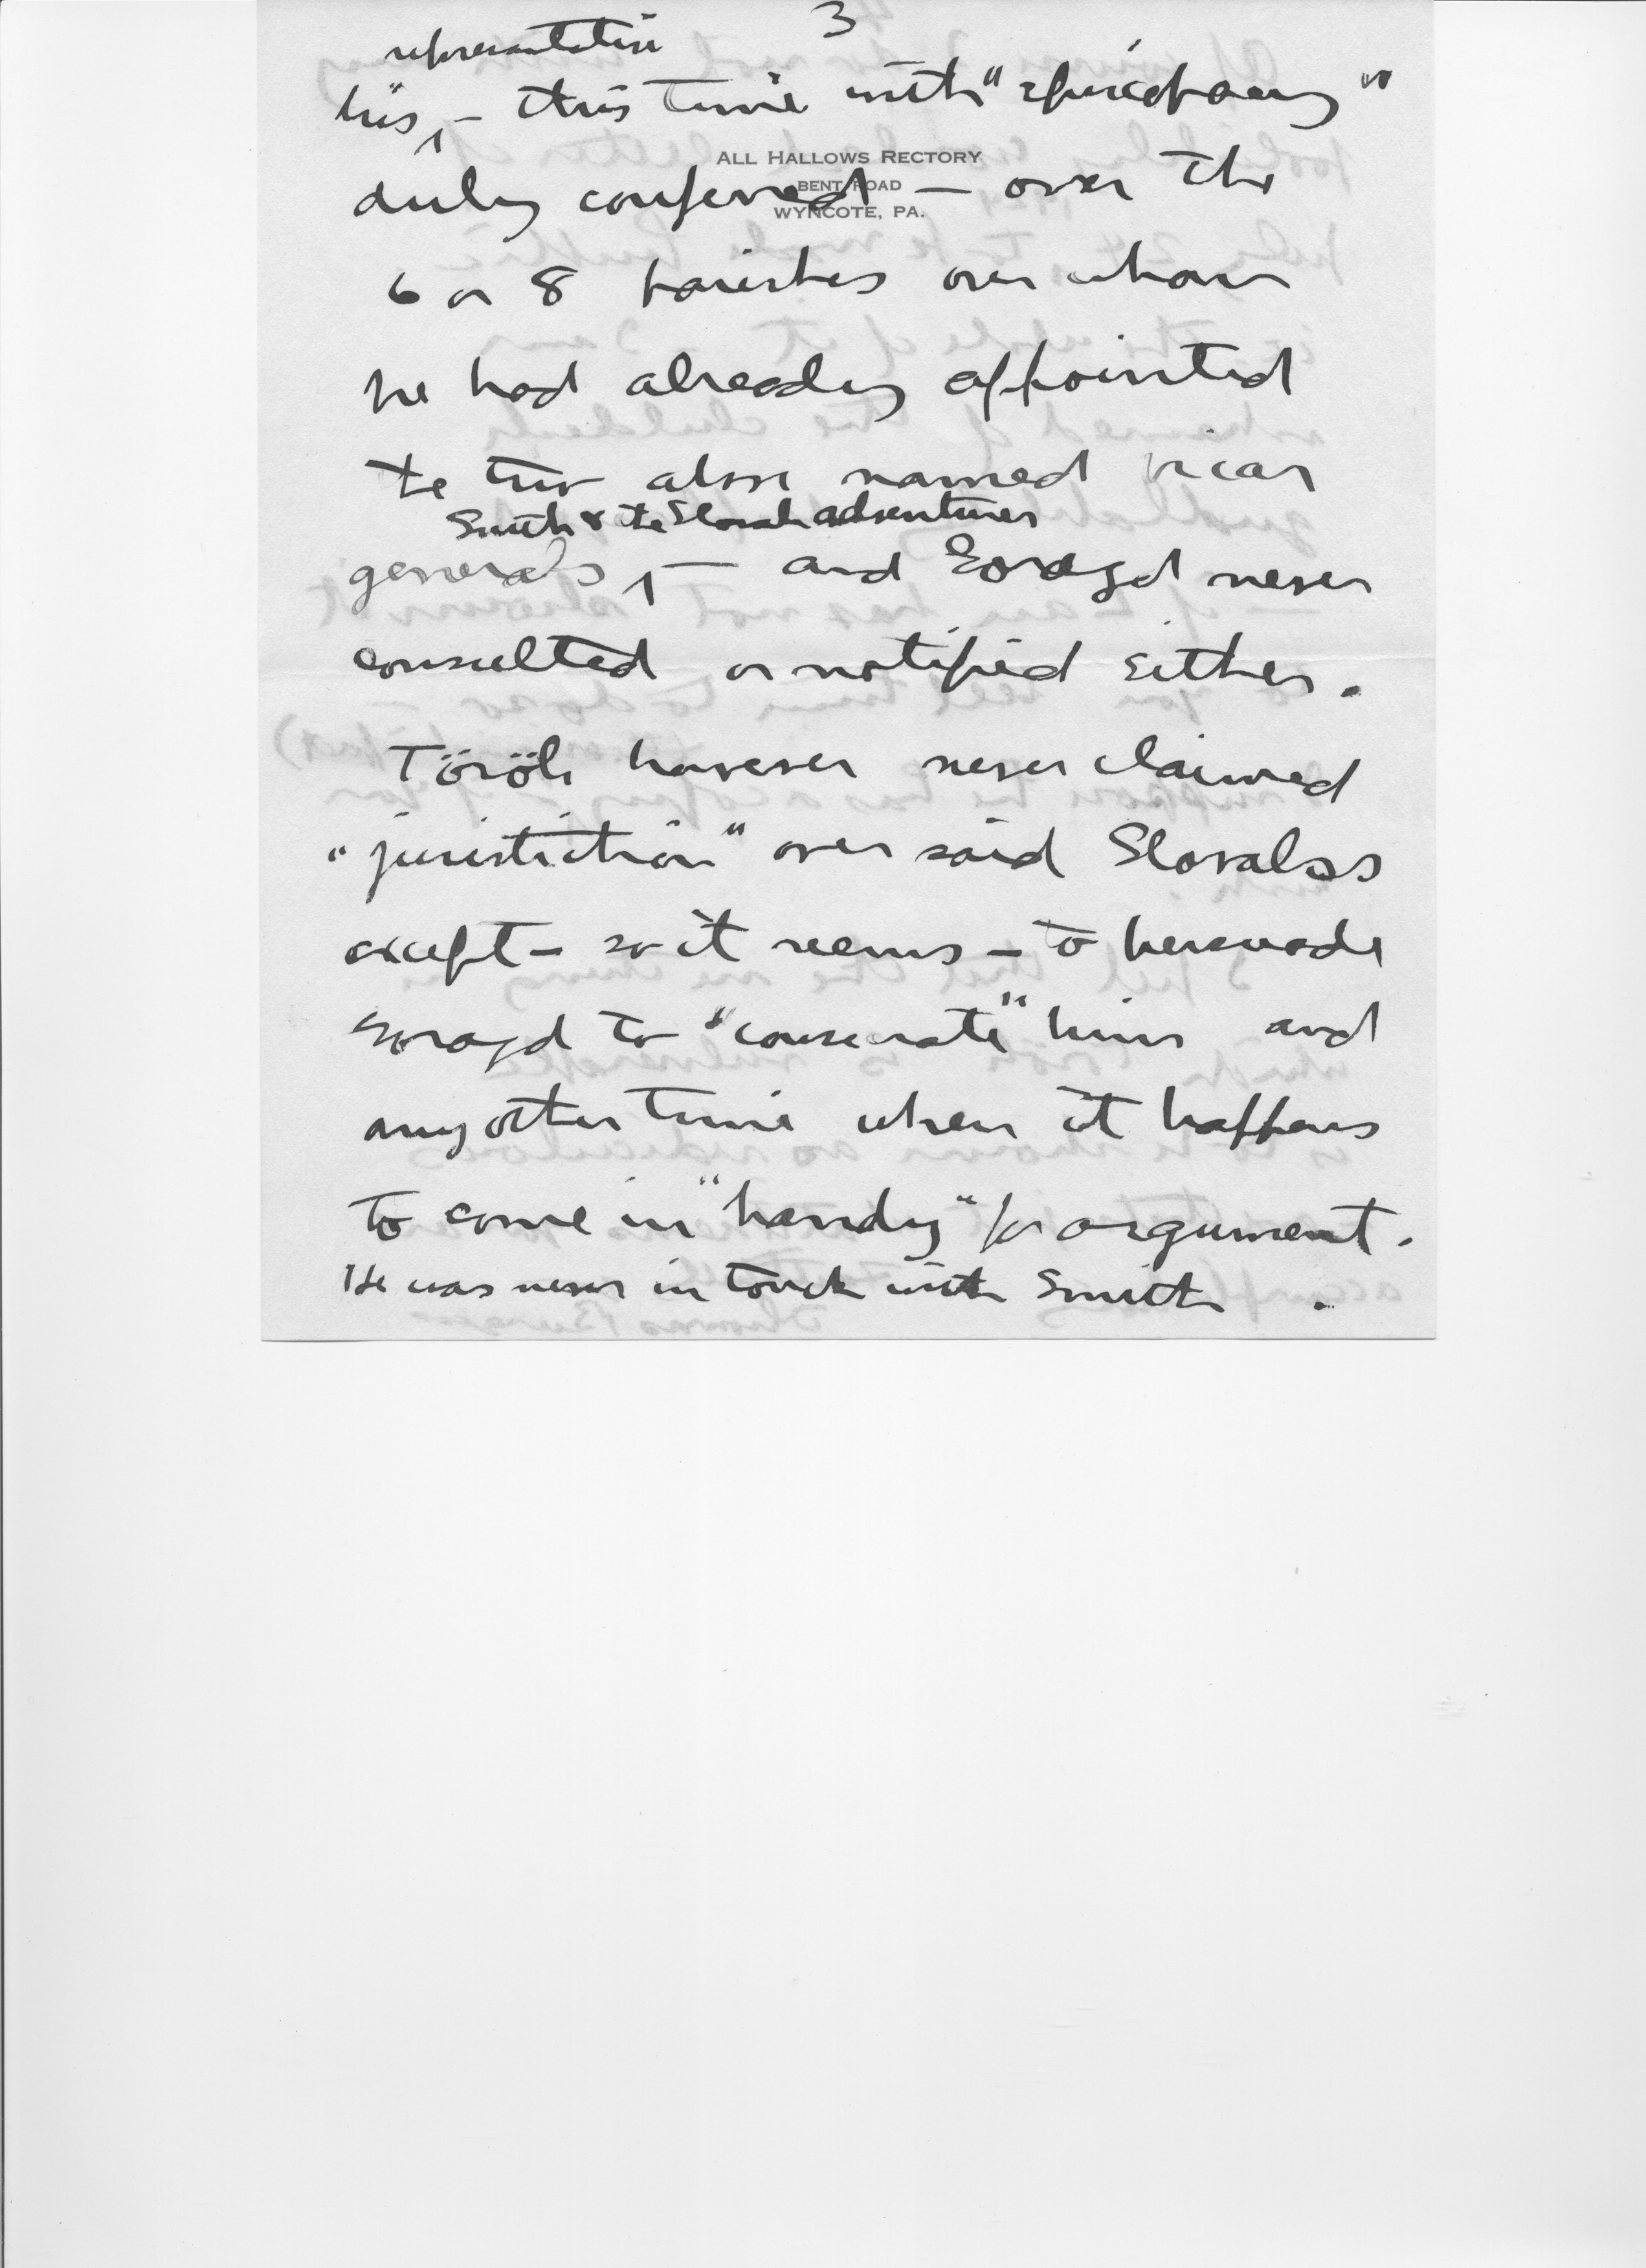 3
representative
his, - this time with "episcopacy"
ALL HALLOWS RECTORY
BENT ROAD
WYNCOTE, PA.
duly conferred - over the
6 or 8 parishes over whom
he had already appointed
te two above named vicar
Smith & the Slovak adventurer
generals, - and Gorazd never
consulted or notified either.
Török however never claimed
"juristiction" over said Slovaks
except - so it seems - to persuade
Gorazd to "consecrate" him and
any other time when it happens
to come in "handy" for argument.
He was never in touch with Smith.